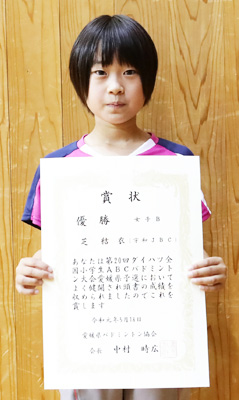 賞状
優勝 女子B
芝 桔衣(宇和JBC)
あなたは第20回ダイハツ全
国小学生ABCバドミント
ン大会愛媛県予選において
よく健闘され頭書の成績を
収められましたのでこれを
賞します
令和元年5月26日
愛媛県バドミントン協会
会長 中村 時広